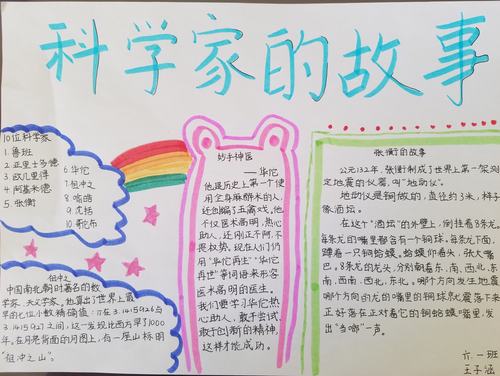 科学家的故事
10位科学家
1.鲁班
2.亚里士多德
3.欧几里得
4.阿基米德
5.张衡
6.华佗
7.祖冲之
8.哈皓
9.沈括
10.哥伦布
祖冲之
中国南北朝时著名的数
学家、天文学家。他算出了世界上最
早的七位小数精确值:π在3.1415926与
3.1415927之间,这一发现比西方早了1000
年。在月是背面的月图上,有一座山标明
"祖冲之山"。
妙手神医
——华佗
他是历史上第一个使
用全身麻醉术的人,
还创编了五禽戏。他
不仅医术高明,热心
助人,还刚正不阿、不
畏权势。现在人们仍
用"华佗再生""华佗
再世"等词语来形容
医术高明的医生。
我们要学习华佗热
心助人,敢于尝试、
敢于创新的精神,
这样才能成功。
张衡的故事
公元132年,张衡制成了世界上第一架测
定地震的仪器,叫"地动仪"。
地动仪是铜做的,直径约3米,样子
像酒坛。
在这个"酒坛"的外壁上,倒挂着8条龙。
每条龙的嘴里都含有一个铜球。每条龙下面,
蹲着一只铜蛤蟆。蛤蟆仰着头,张大嘴
巴。8条龙的龙头,分别朝着东、南、西、北、东
南、西南、西北、东北。哪个方向发生地震
哪个方向的龙的嘴里的铜球就震落下来
正好落在正对着它的铜蛤蟆嘴里,发
出"当啷"一声。
六.一班
王子涵